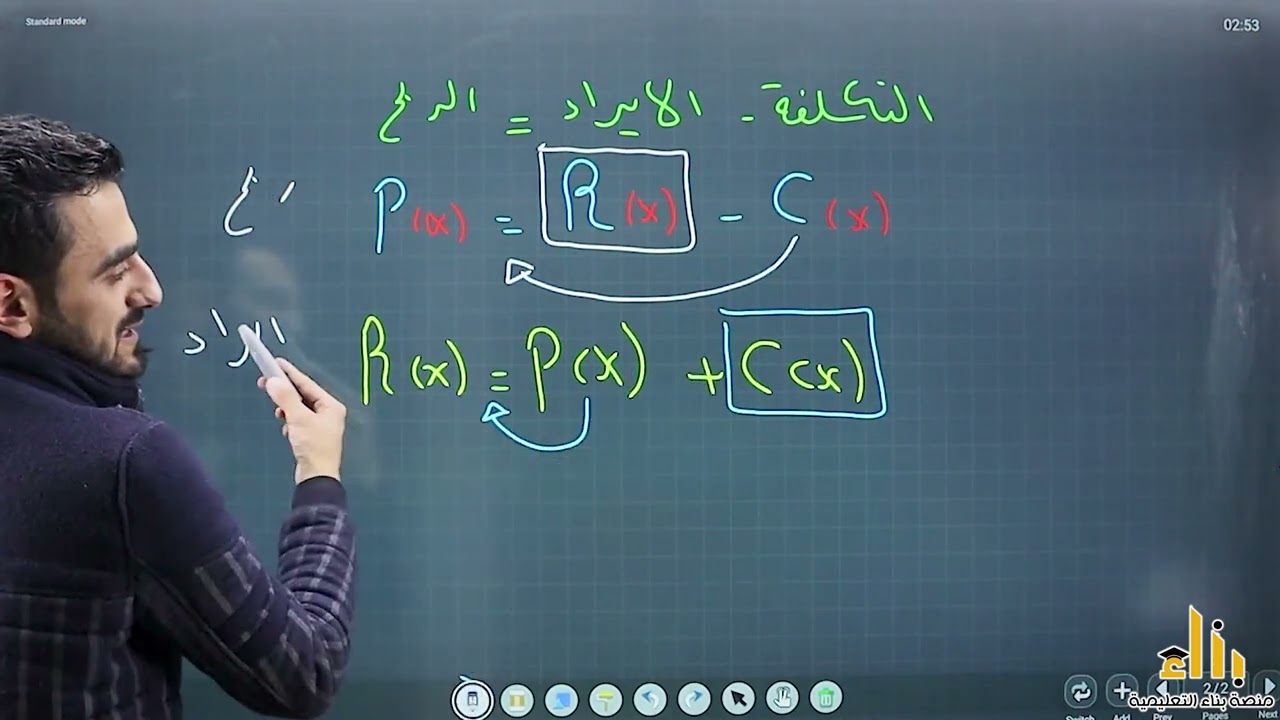 Standard mode
02:53
الربح = الايراد - التكلفة
P(x) = R(x) - C(x)
R(x) = P(x) + C(x)
ايراد
بناء
منصة بناء التعليمية
Switch Add Prev 2/2 Pages Next